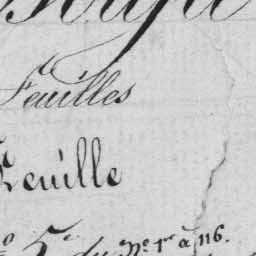 Feuilles
Feuille
5e du No 1er à 116.